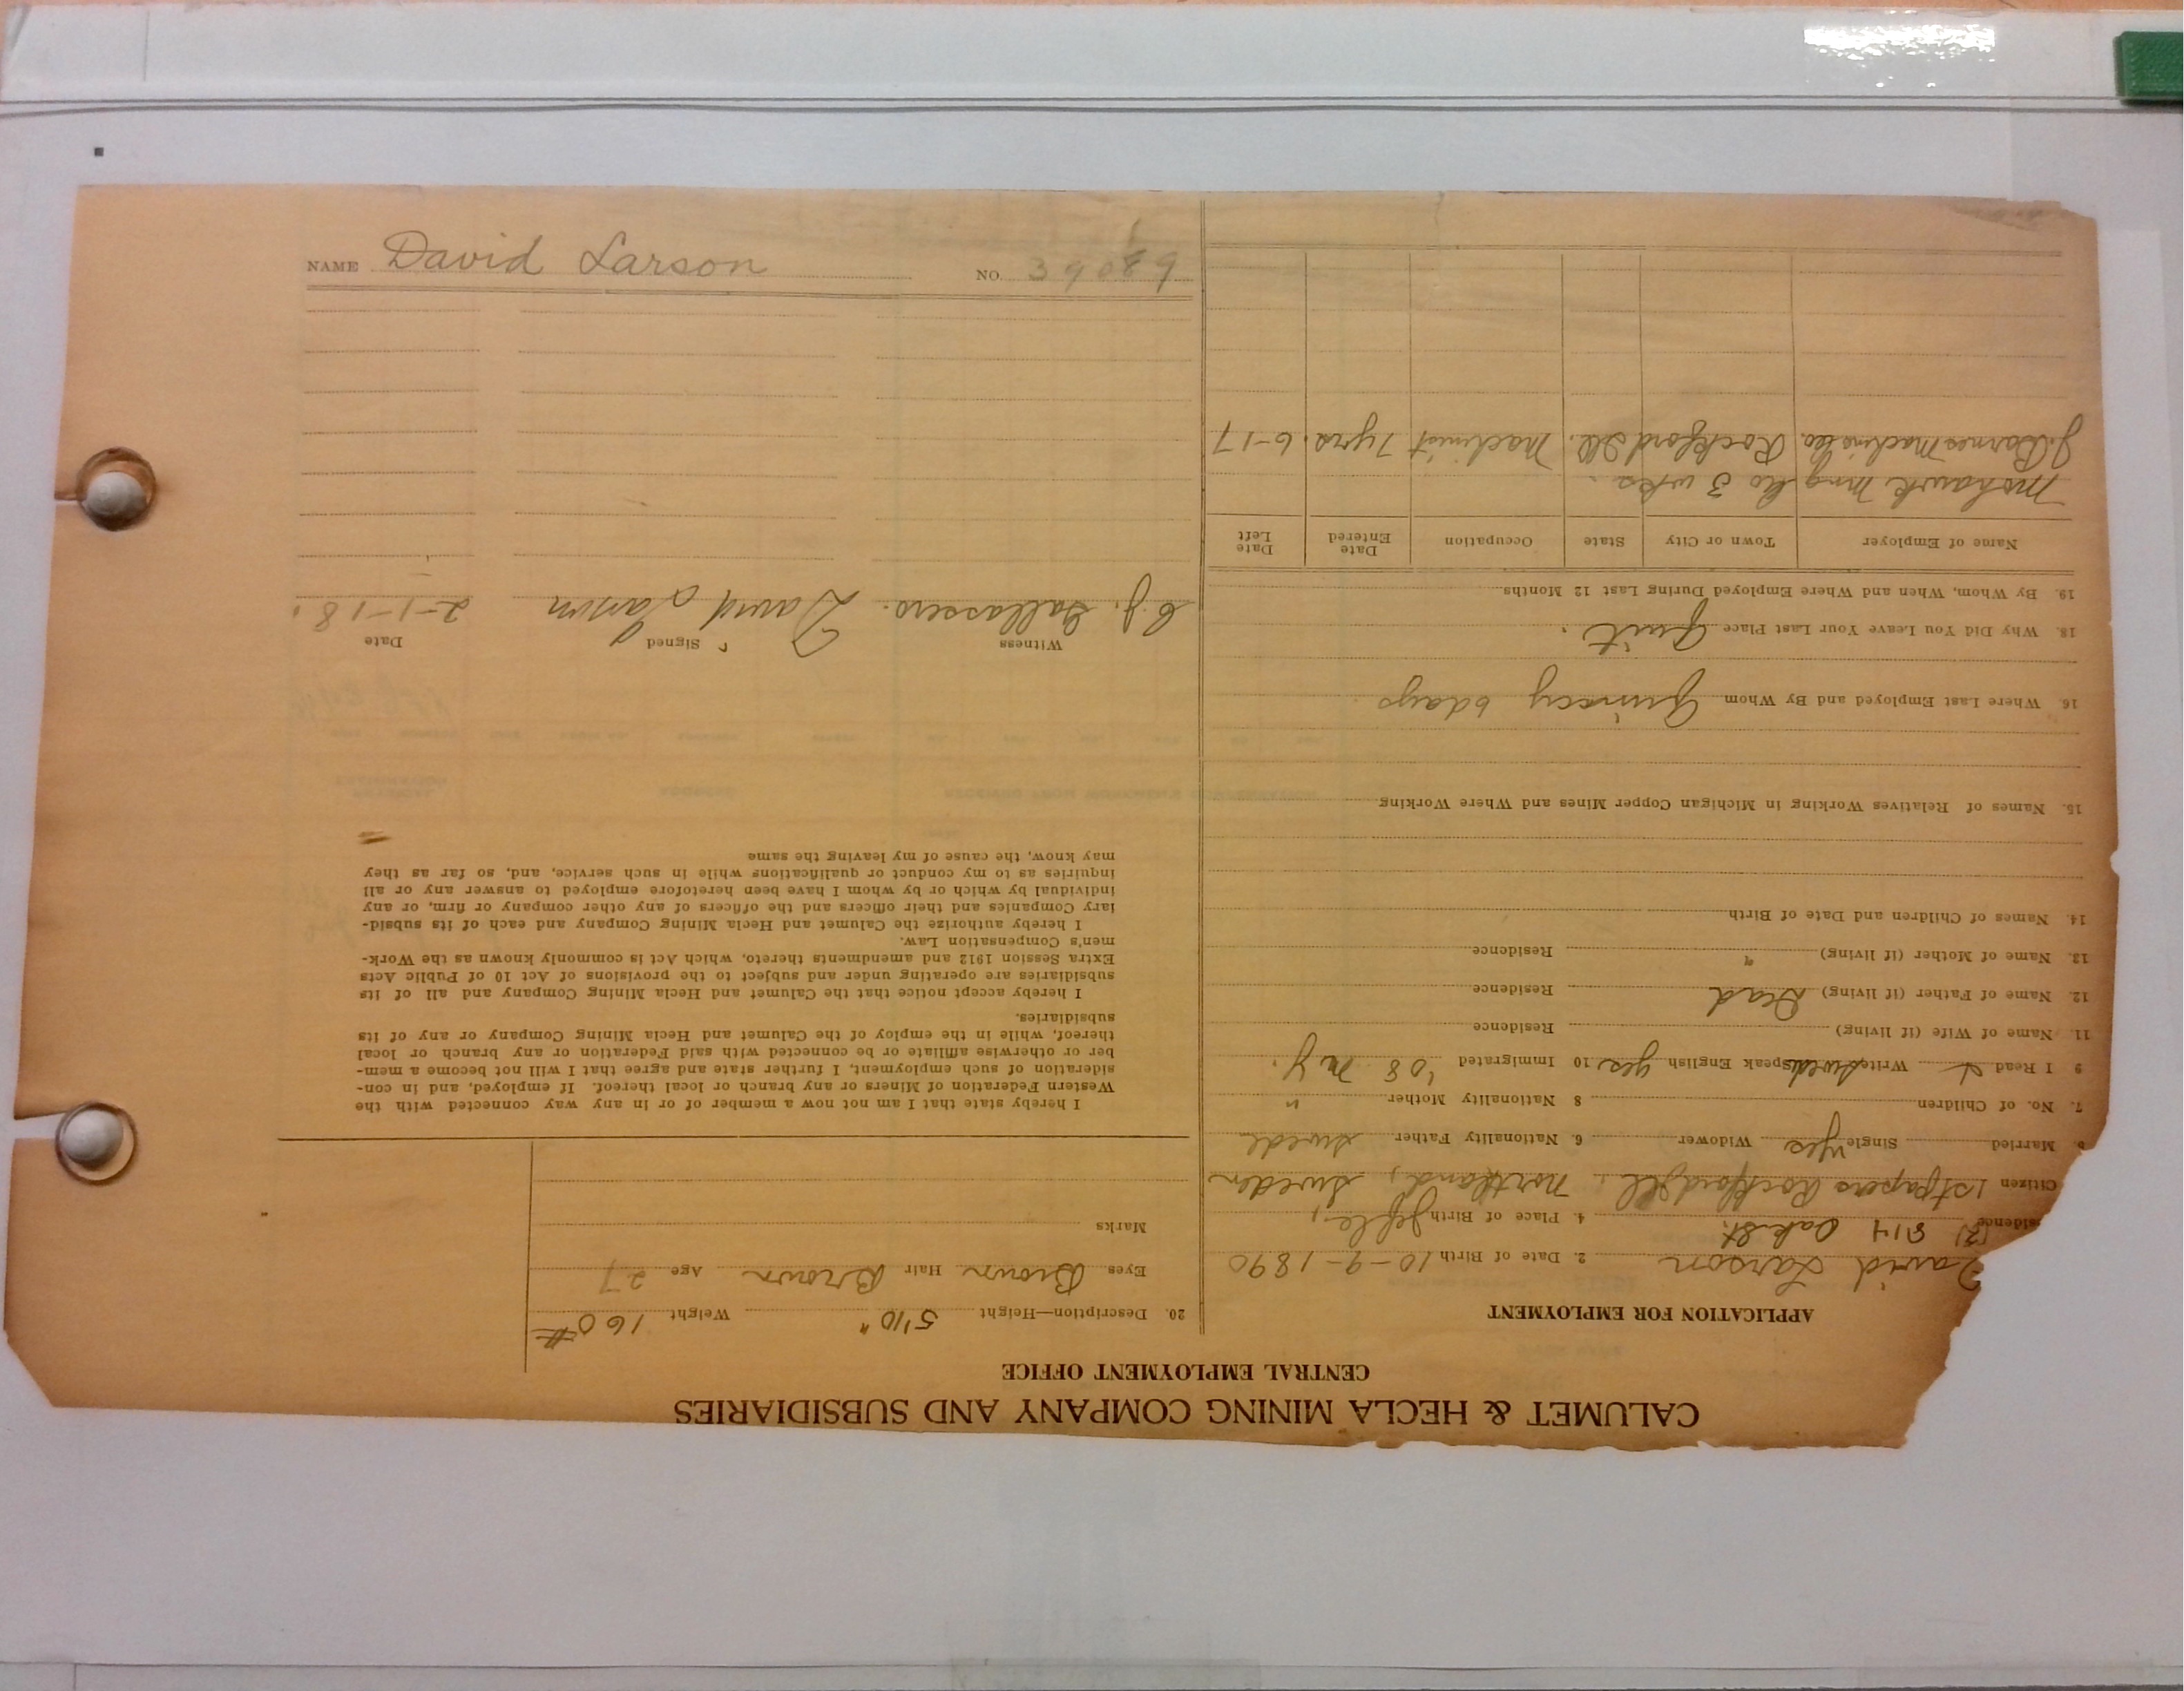 CALUMET & HECLA MINING COMPANY AND SUBSIDIARIES
CENTRAL EMPLOYMENT OFFICE
APPLICATION FOR EMPLOYMENT
David Larson 2. Date of Birth 10-9-1890
sidence 814 Oak St. 4. Place of Birth Gefle,
Citizen 1st papers Rockford Ill. Norrland, Sweden
5. Married Single yes Widower 6. Nationality Father Swede
7. No. of Children 8 Nationality Mother "
9 I Read & Write Swed. Speak English yes 10 Immigrated '08 N.Y.
11. Name of Wife (if living) Residence
12. Name of Father (if living) Dead Residence
13. Name of Mother (if living) " Residence
14. Names of Children and Date of Birth
15. Names of Relatives Working in Michigan Copper Mines and Where Working
16. Where Last Employed and By Whom Quincy 6 days
18. Why Did You Leave Your Last Place Quit.
19. By Whom, When and Where Employed During Last 12 Months
Name of Employer Town or City State Occupation Date Entered Date Left
Mohawk Mng Co 3 wks.
J. Barnes Machine Co. Rockford Ill. Machinist 7 yrs. 6-17
20. Description—Height 5'10" Weight 160#
Eyes Brown Hair Brown Age 27
Marks
I hereby state that I am not now a member of or in any way connected with the
Western Federation of Miners or any branch or local thereof. If employed, and in con-
sideration of such employment, I further state and agree that I will not become a mem-
ber or otherwise affiliate or be connected with said Federation or any branch or local
thereof, while in the employ of the Calumet and Hecla Mining Company or any of its
subsidiaries.
I hereby accept notice that the Calumet and Hecla Mining Company and all of its
subsidiaries are operating under and subject to the provisions of Act 10 of Public Acts
Extra Session 1912 and amendments thereto, which Act is commonly known as the Work-
men's Compensation Law.
I hereby authorize the Calumet and Hecla Mining Company and each of its subsid-
iary Companies and their officers and the officers of any other company or firm, or any
individual by which or by whom I have been heretofore employed to answer any or all
inquiries as to my conduct or qualifications while in such service, and, so far as they
may know, the cause of my leaving the same
Witness Signed Date
David Larson 2-1-18.
NAME David Larson NO. 39089